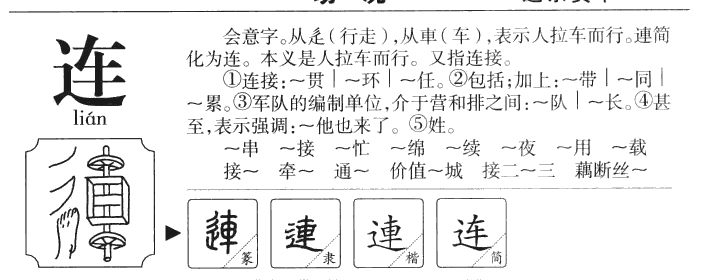 连
lián
会意字。从辵(行走),从車(车),表示人拉车而行。連简
化为连。本义是人拉车而行。又指连接。
①连接:～贯｜～环｜～任。②包括;加上:～带｜～同｜
～累。③军队的编制单位,介于营和排之间:～队｜～长。④甚
至,表示强调:～他也来了。⑤姓。
～串 ～接 ～忙 ～绵 ～续 ～夜 ～用 ～载
接～ 牵～ 通～ 价值～城 接二～三 藕断丝～
連 篆 連 隶 連 楷 连 简